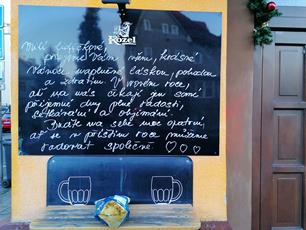 Kozel
Milí kafíčkové,
přejeme Vám všem, krásné
Vánoce naplněné láskou, pohodou
a zdravím. V novém roce,
ať na vás čekají jen samé
příjemné dny plné radosti,
setkávání a objímání.
Buďte na sebe moc opatrní,
ať se v příštím roce můžeme
radovat společně